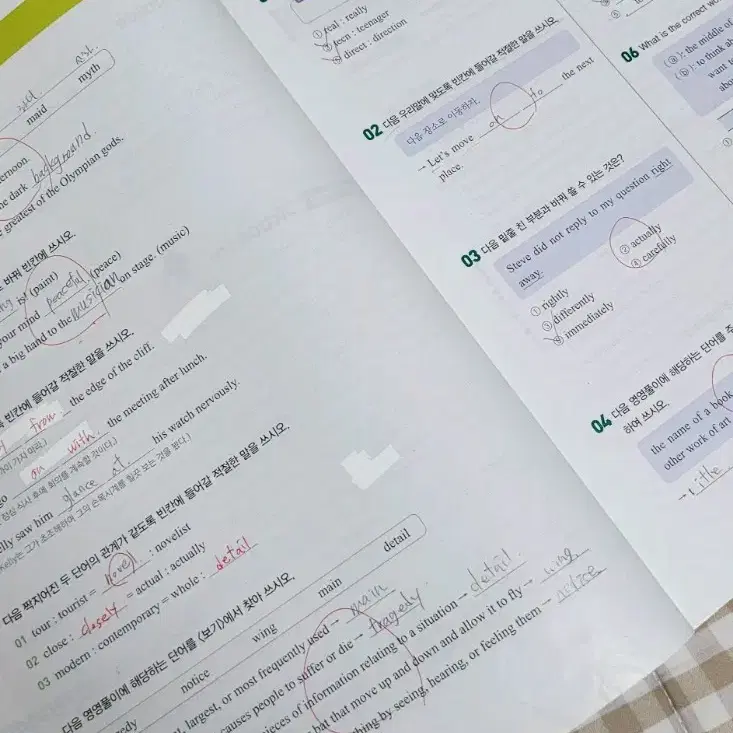 maid
myth
ernoon.
he dark background
greatest of the Olympian gods.
바꿔 빈칸에 쓰시오.
ist (paint)
your mind peaceful (peace)
a big hand to the musician on stage. (music)
빈칸에 들어갈 적절한 말을 쓰시오.
from the edge of the cliff.
가이 가지 마라.)
go on with the meeting after lunch.
점심 식사 후에 회의를 계속할 것이다.)
elly saw him glance at his watch nervously.
Kelly는 그가 초조해하며 그의 손목시계를 힐끗 보는 것을 봤다.)
다음 짝지어진 두 단어의 관계가 같도록 빈칸에 들어갈 적절한 말을 쓰시오.
01 tour : tourist = novel : novelist
02 close : closely = actual : actually
03 modern : contemporary = whole : detail
다음 영영풀이에 해당하는 단어를 <보기>에서 찾아 쓰시오.
edy notice wing main detail
largest, or most frequently used → main
causes people to suffer or die → tragedy
ieces of information relating to a situation → detail
that move up and down and allow it to fly → wing
hing by seeing, hearing, or feeling them → notice
① real : really
③ teen : teenager
⑤ direct : direction
02 다음 우리말에 맞도록 빈칸에 들어갈 적절한 말을 쓰시오.
다음 장소로 이동하자.
→ Let's move on to the next
place.
03 다음 밑줄 친 부분과 바꿔 쓸 수 있는 것은?
Steve did not reply to my question right
away.
① rightly ② actually
③ differently ④ carefully
⑤ immediately
04 다음 영영풀이에 해당하는 단어를 주
하여 쓰시오.
the name of a book
other work of art
→ title
⑤
06 What is the correct wo
(ⓐ): the middle of
(ⓑ): to think ab
want to
abo
①